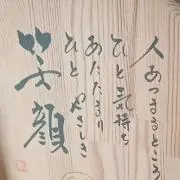 人あつまるところ
ひと気持ち
あたたまり
ひと やさしき
笑顔